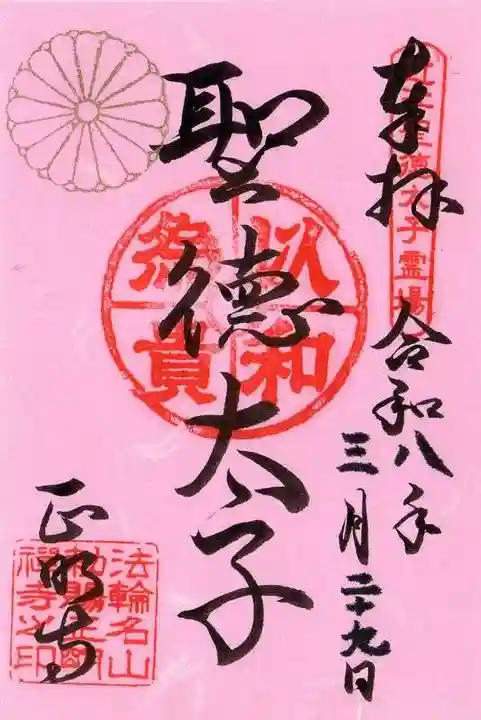 奉拝
令和八年
三月二十九日
聖徳太子
以和
為貴
聖徳太子霊場
正明寺
法輪名山
勅賜正明
禅寺之印